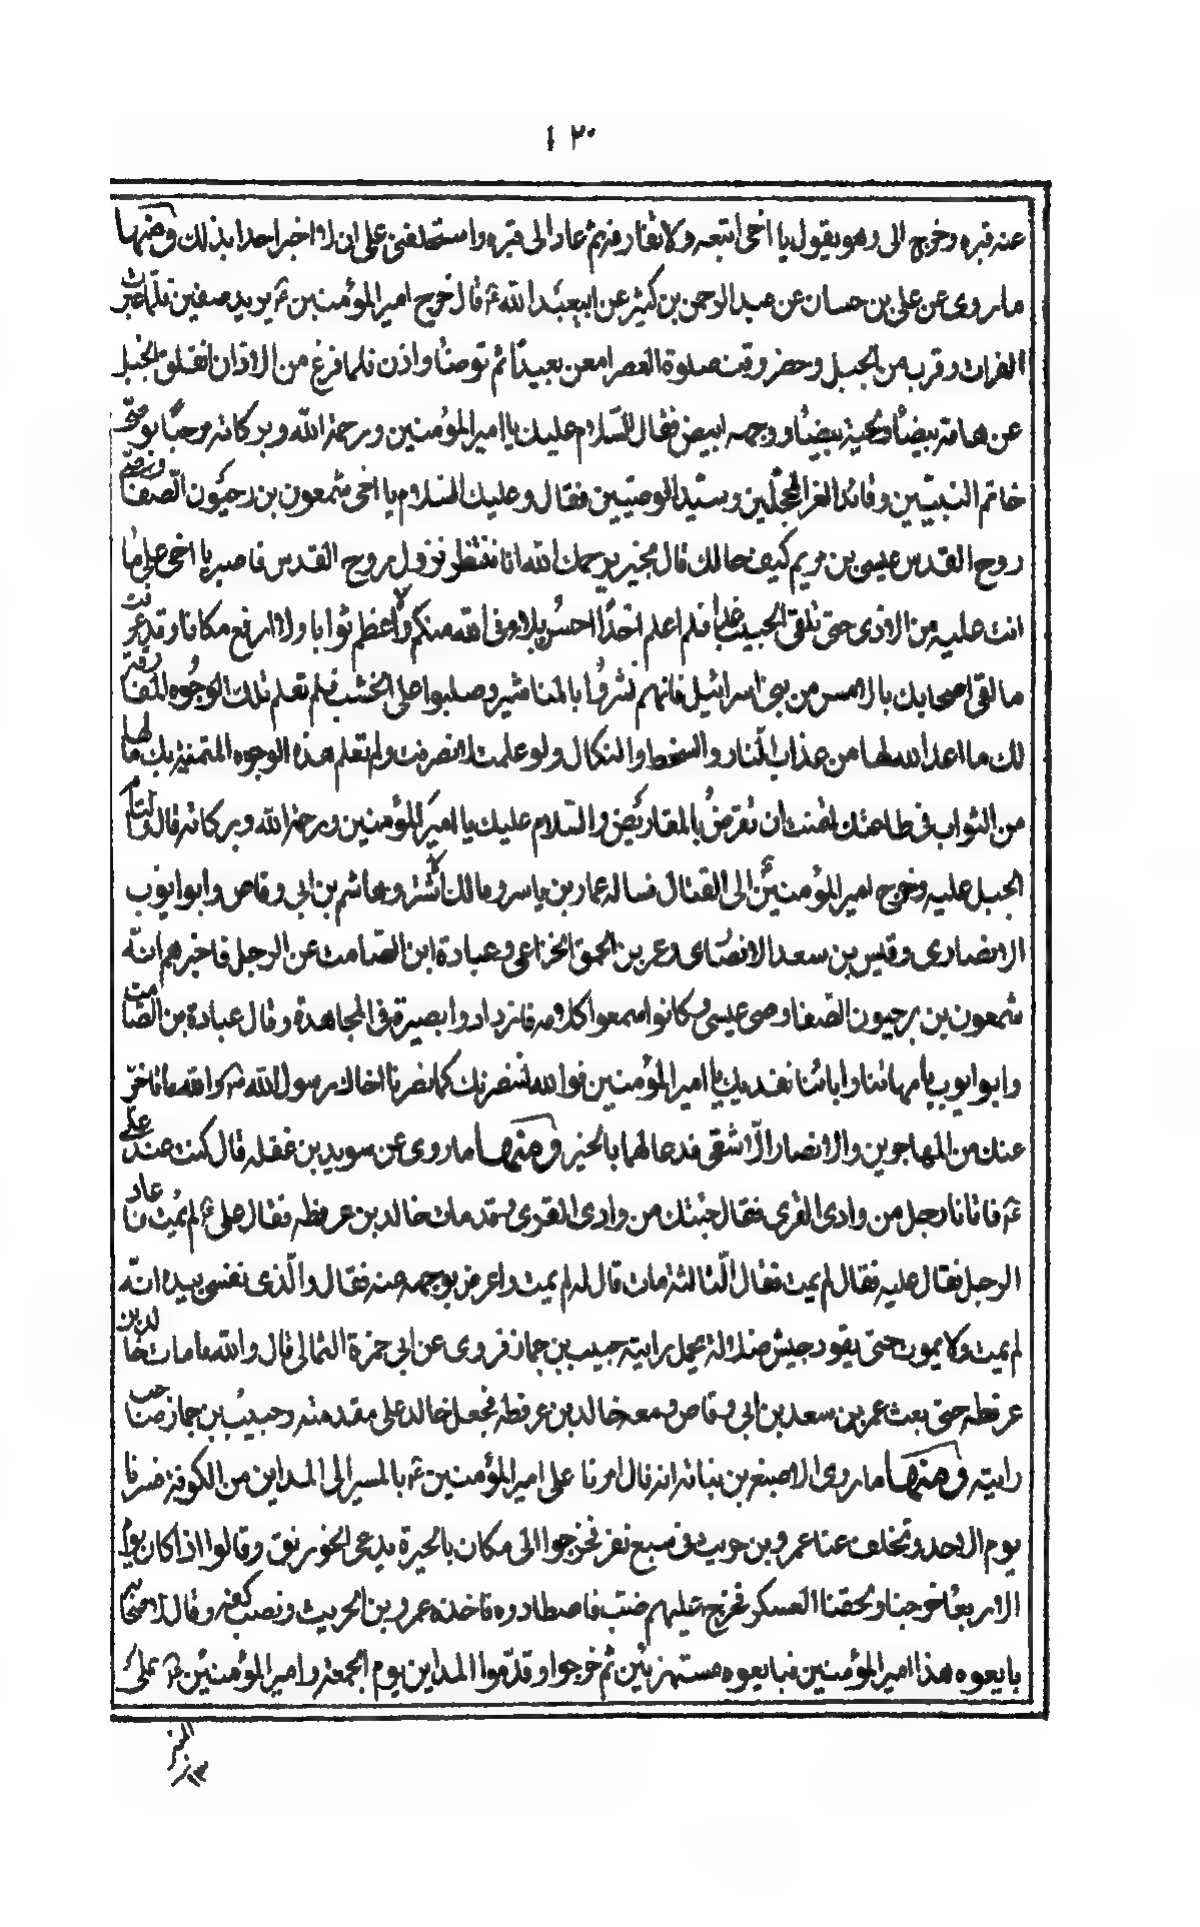 ١٢٠
عنه قبره وخرج الى وهو يقول يا اخى اتبعه ولا تفارقه ثم عاد الى قبره واستحلفنى على ان لا اخبر احدا بذلك ومنها
ما روى عن على بن حسان عن عبد الرحمن بن كثير عن ابيعبد الله ع قال خرج امير المؤمنين ع يريد صفين فلما عبر
الفرات وقرب من الجبل وحضر وقت صلوة العصر امعن بعيدًا ثم توضأ واذن فلما فرغ من الاذان انفلق الجبل
عن هامة بيضاء ولحية بيضاء ووجه ابيض فقال السلام عليك يا امير المؤمنين ورحمة الله وبركاته مرحبًا بوصى
خاتم النبيين وقائد الغر المحجلين وسيد الوصيين فقال وعليك السلام يا اخى شمعون بن رحيون الصفا وصى
روح القدس عيسى بن مريم كيف حالك قال بخير يرحمك الله انا منتظر نزول روح القدس فاصبر يا اخى على ما
انت عليه من الاذى حتى تلقى الحبيب غدا فلم اعلم احدًا احسن بلاء فى الله منكم ولا اعظم ثوابا ولا ارفع مكانا وقد عرفت
ما لقى اصحابك بالامس من بنى اسرائيل فانهم نشروا بالمناشير وصلبوا على الخشب فلم تعلم تلك الوجوه المفارقة
لك ما اعد الله لها من عذاب النار والسخط والنكال ولو علمت لانصرفت ولم تعلم هذه الوجوه المتمنية بك ما لها
من الثواب فى طاعتك لتمنت ان تقرض بالمقاريض والسلام عليك يا امير المؤمنين ورحمة الله وبركاته قال والتام
الجبل عليه وخرج امير المؤمنين ع الى القتال فساله عمار بن ياسر ومالك الاشتر وهاشم بن ابى وقاص وابو ايوب
الانصارى وقيس بن سعد الانصارى وعمر بن الحمق الخزاعى وعبادة ابن الصامت عن الرجل فاخبرهم انه
شمعون بن رحيون الصفا وصى عيسى وكانوا سمعوا كلامه فازدادوا بصيرة فى المجاهدة وقال عبادة بن الصامت
وابو ايوب بامهاتنا وابائنا نفديك يا امير المؤمنين فوالله لننصرنك كما نصرنا اخاك رسول الله ص والله ما تاخر
عنك من المهاجرين والانصار الا شقى فدعا لهما بالخير ومنها ما روى عن سويد بن غفله قال كنت عند على
ع فاتانا رجل من وادى القرى فقال جئتك من وادى القرى وقد مات خالد بن عرفطه فقال على ع لم يمت فاعاد
الرجل فقال عليه فقال لم يمت فقال الثالثة مات قال له لم يمت واعرض بوجهه عنه فقال والذى نفسى بيده انه
لم يمت ولا يموت حتى يقود جيش ضلالة يحمل رايته حبيب بن جماز فروى عن ابى حمزة الثمالى قال والله ما مات خالد بن
عرفطه حتى بعث عمر بن سعد بن ابى وقاص ومعه خالد بن عرفطه فجعل خالد على مقدمته وحبيب بن جماز صاحب
رايته ومنها ما روى الاصبغ بن بناته انه قال امرنا على امير المؤمنين ع بالمسير الى المداين من الكوفة فسرنا
يوم الاحد وتخلف عنا عمرو بن حريث فى سبع نفر فخرجوا الى مكان بالحيرة يدعى الخورنق وقالوا اذا كان يوم
الاربعا خرجنا ولحقنا العسكر فخرج عليهم ضب فاصطادوه فاخذه عمرو بن الحريث ونصب كفه وقال لاصحابه
بايعوه هذا امير المؤمنين فبايعوه مستهزئين ثم خرجوا وقدموا المداين يوم الجمعة وامير المؤمنين ع على
المنبر